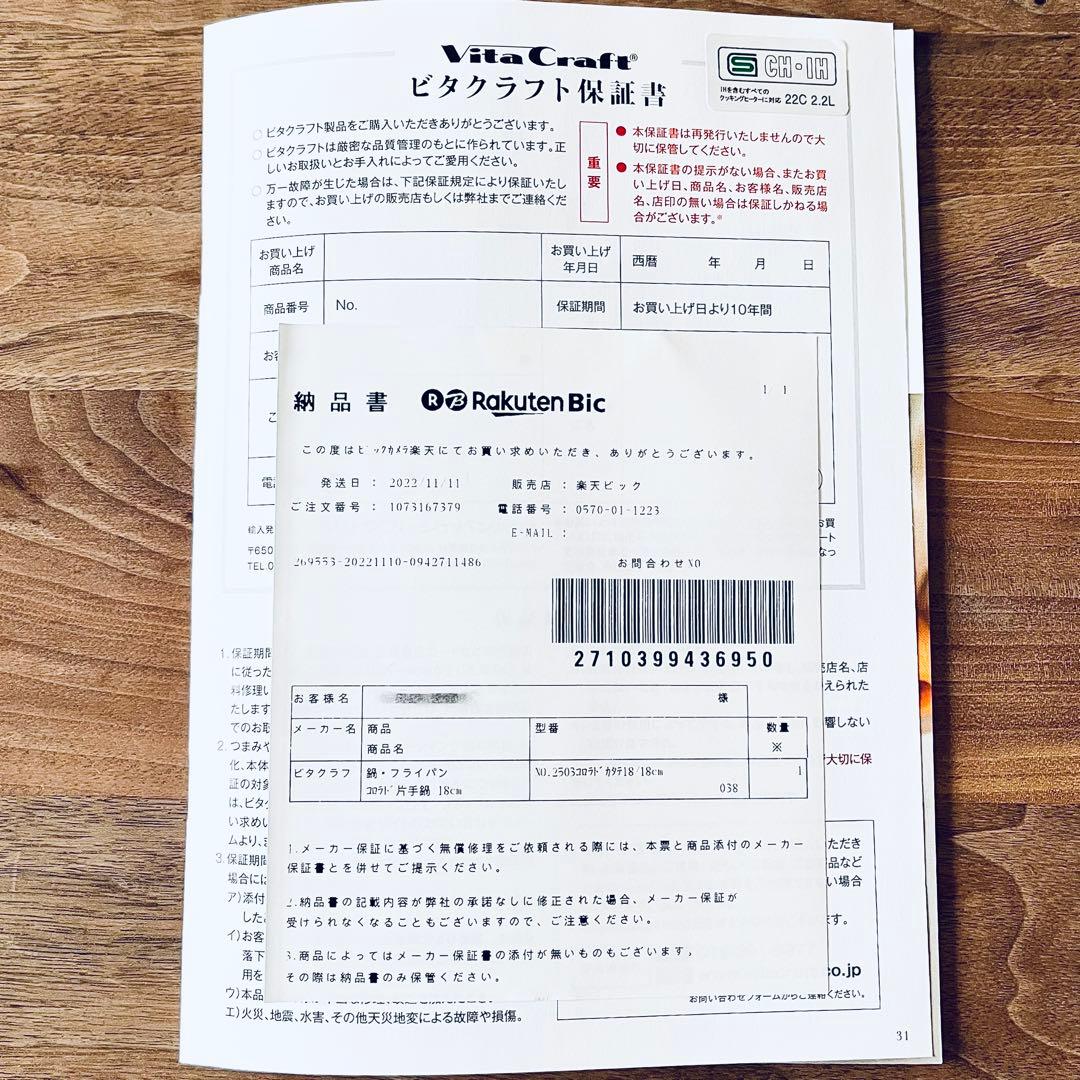 Vita Craft®
ビタクラフト保証書
S CH・IH
IHを含むすべての
クッキングヒーターに対応 22C 2.2L
○ ビタクラフト製品をご購入いただきありがとうございます。
○ ビタクラフトは厳密な品質管理のもとに作られています。正
しいお取扱いとお手入れによってご愛用ください。
○ 万一故障が生じた場合は、下記保証規定により保証いたし
ますので、お買い上げの販売店もしくは弊社までご連絡くだ
さい。
重要
● 本保証書は再発行いたしませんので大
切に保管してください。
● 本保証書の提示がない場合、またお買
い上げ日、商品名、お客様名、販売店
名、店印の無い場合は保証しかねる場
合がございます。※
お買い上げ
商品名
お買い上げ
年月日
西暦 年 月 日
商品番号 No.
保証期間 お買い上げ日より10年間
お客
ご
電話
輸入発
〒650
TEL.0
納品書 Rakuten Bic
1/ 1
この度はビックカメラ楽天にてお買い求めいただき、ありがとうございます。
発送日 : 2022/11/11
販売店 : 楽天ビック
ご注文番号 : 1073167379
電話番号 : 0570-01-1223
E-MAIL :
269553-20221110-0942711486
お問合わせNO
2710399436950
お客様名 様
メーカー名 商品 型番 数量
商品名 ※
ビタクラフ 鍋・フライパン NO.2503コロラドカタテ18/18cm 1
コロラド片手鍋 18cm 038
1.メーカー保証に基づく無償修理をご依頼される際には、本票と商品添付のメーカー
保証書とを併せてご提示ください。
2.納品書の記載内容が弊社の承諾なしに修正された場合、メーカー保証が
受けられなくなることもございますので、ご注意ください。
3.商品によってはメーカー保証書の添付が無いものもございます,
その際は納品書のみ保管ください。
1.保証期間
に従った
料修理い
たします
でのお取
2.つまみや
化、本体
証の対象
は、ビタク
い求めい
ムより、
3.保証期間
場合には
ア)添付
した
イ)お客
落下
用を
ウ)本品
エ)火災、地震、水害、その他天災地変による故障や損傷。
売店名、店
えられた
響しない
大切に保
ただき
品など
い場合
ます。
co.jp
お問い合わせフォームからご連絡ください。
31